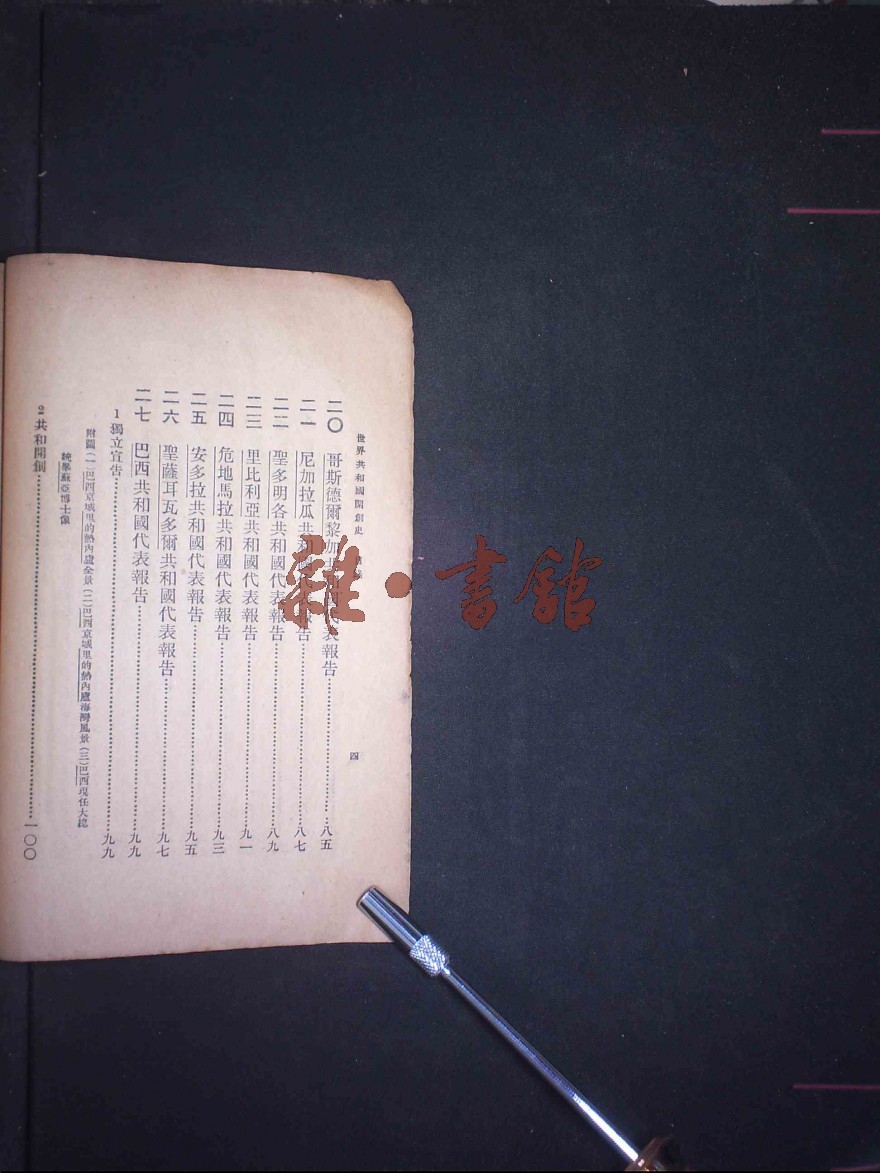 世界共和國開創史
四
二〇 哥斯德爾黎加共和國代表報告……八五
二一 尼加拉瓜共和國代表報告……八七
二二 聖多明各共和國代表報告……八九
二三 里比利亞共和國代表報告……九一
二四 危地馬拉共和國代表報告……九三
二五 安多拉共和國代表報告……九五
二六 聖薩耳瓦多爾共和國代表報告……九七
二七 巴西共和國代表報告……九九
1 獨立宣告……九九
附圖(一)巴西京城里的熱內盧全景(二)巴西京城里的熱內盧海灣風景(三)巴西現任大總
統畢蘇亞博士像
2 共和開創……一〇〇
雜·書館